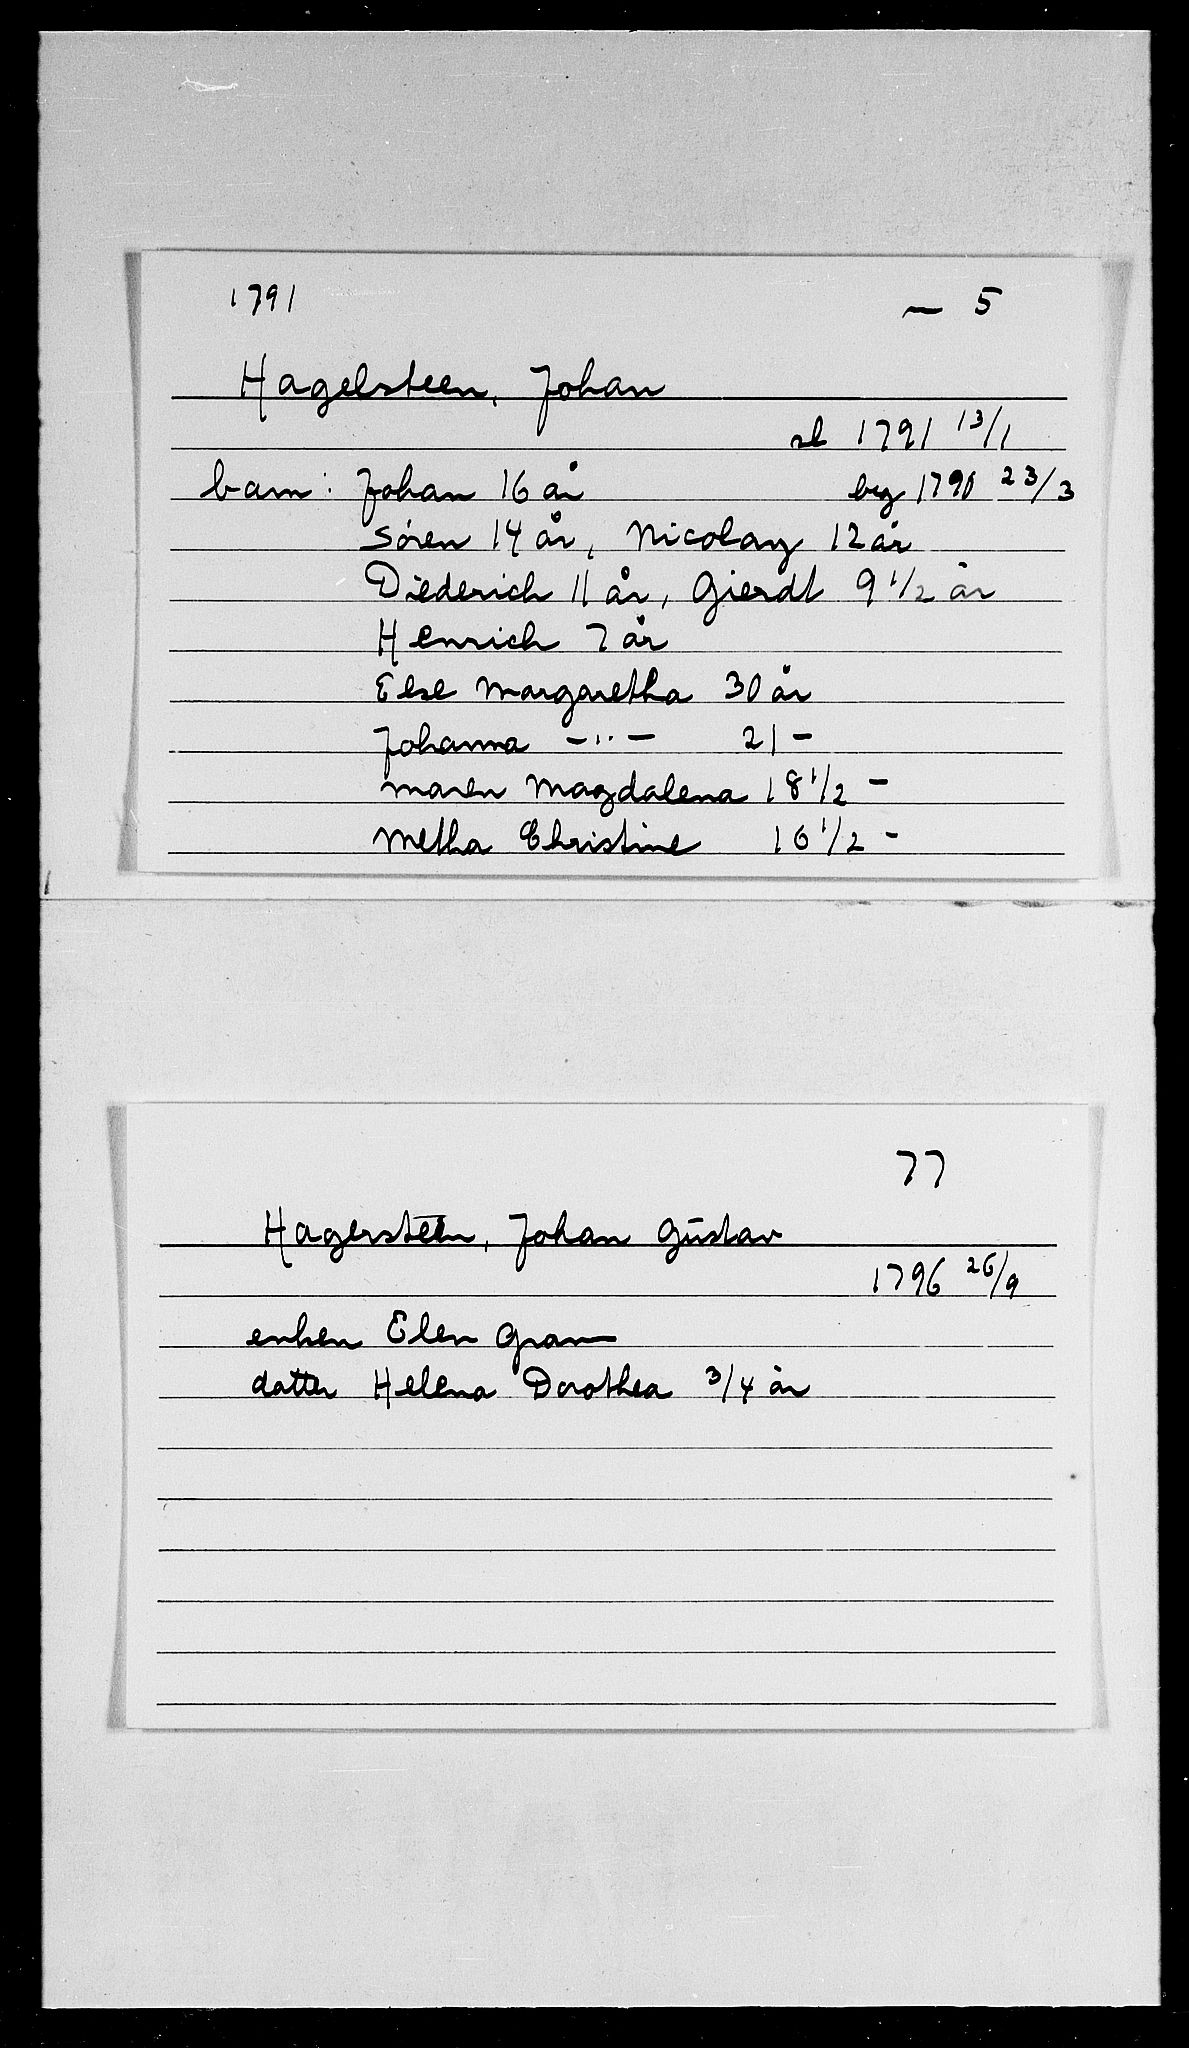 1791 — 5
Hagelsteen, Johan
sl 1791 13/1
barn: Johan 16 år beg 1790 23/3
Sören 14 år, Nicolay 12 år
Diederich 11 år, Gierdt 9 1/2 år
Henrich 7 år
Else Margaretha 30 år
Johanna -"- 21 -
Maren Magdalena 18 1/2 -
Metha Christine 16 1/2 -
77
Hagersteen, Johan Gustav
1796 26/9
enken Elen Gran
datter Helena Dorothea 3/4 år